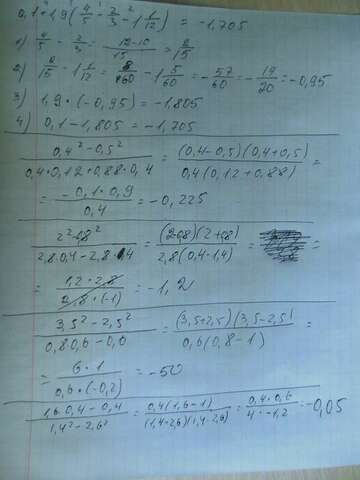 0,1 + 1,9(4/5 - 2/3 - 1 1/12) = -1,705
1) 4/5 - 2/3 = 12-10/15 = 2/15
2) 2/15 - 1 1/12 = 8/60 - 1 5/60 = -57/60 = -19/20 = -0,95
3) 1,9 · (-0,95) = -1,805
4) 0,1 - 1,805 = -1,705
0,4² - 0,5² / 0,4·0,12 + 0,88·0,4 = (0,4-0,5)(0,4+0,5) / 0,4(0,12+0,88) =
= -0,1·0,9 / 0,4 = -0,225
/ 2,8·0,4 - 2,8·1,4 = / 2,8(0,4-1,4) =
= 1,2 · 2,8 / 2,8 · (-1) = -1,2
3,5² - 2,5² / 0,8·0,6 - 0,6 = (3,5+2,5)(3,5-2,5) / 0,6(0,8-1) =
= 6·1 / 0,6·(-0,2) = -50
1,6·0,4 - 0,4 / 1,4² - 2,6² = 0,4(1,6-1) / (1,4+2,6)(1,4-2,6) = 0,4·0,6 / 4·-1,2 = -0,05